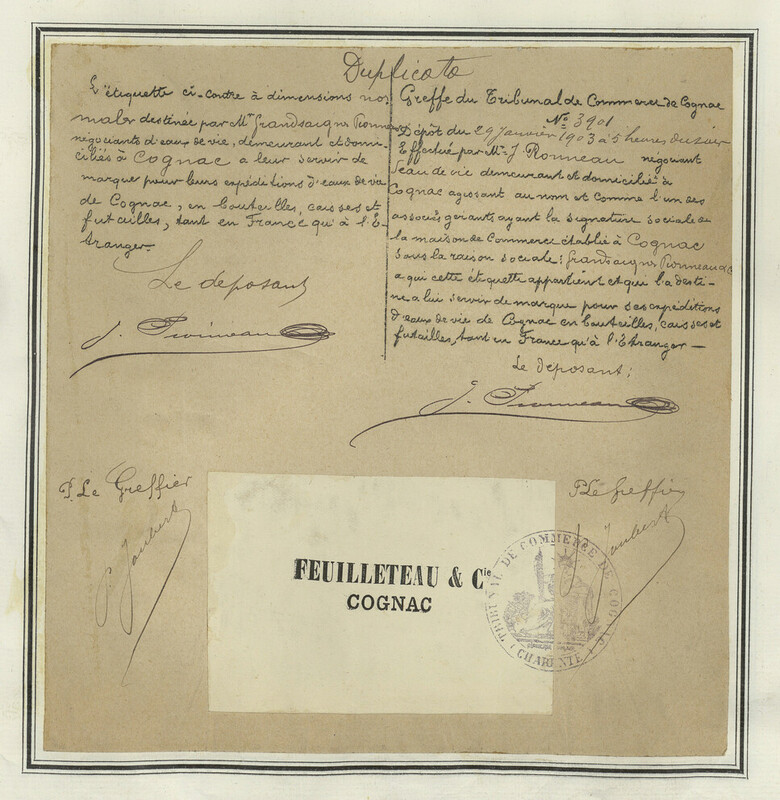 Duplicata
L'étiquette ci-contre à dimensions nor-
males destinée par Mrs Grandsaigne Pronneau
négociants d'eaux de vie, demeurant et domi-
ciliés à Cognac a leur servir de
marque pour leurs expéditions d'eaux de vie
de Cognac, en bouteilles, caisses et
futailles, tant en France qu'à l'É-
tranger.
Le deposant
J. Pronneau
Greffe du Tribunal de Commerce de Cognac
No 3901
Dépôt du 29 Janvier 1903 à 5 heures du soir
Effectué par Mr J. Pronneau négociant
d'eau de vie demeurant et domicilié à
Cognac agissant au nom et comme l'un des
associés gérants ayant la signature sociale de
la maison de Commerce établie à Cognac
sous la raison sociale: Grandsaigne Pronneau &
a qui cette étiquette appartient et qui l'a desti-
né a lui servir de marque pour ses expéditions
d'eaux de vie de Cognac en bouteilles, caisses et
futailles, tant en France qu'à l'Étranger —
Le deposant:
J. Pronneau
P. Le Greffier
Joubert
P. Le Greffier
Joubert
FEUILLETEAU & Cie
COGNAC
TRIBUNAL DE COMMERCE DE COGNAC
CHARENTE